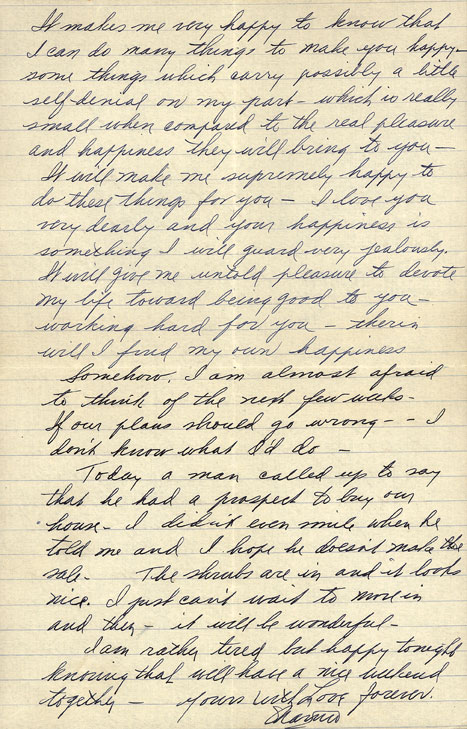 It makes me very happy to know that
I can do many things to make you happy—
some things which carry possibly a little
self-denial on my part - which is really
small when compared to the real pleasure
and happiness they will bring to you —
It will make me supremely happy to
do these things for you — I love you
very dearly and your happiness is
something I will guard very jealously.
It will give me untold pleasure to devote
my life toward being good to you —
working hard for you — therin
will I find my own happiness
Somehow, I am almost afraid
to think of the next few weeks -
If our plans should go wrong - - I
don't know what I'd do —
Today a man called up to say
that he had a prospect to buy our
house - I didn't even smile when he
told me and I hope he doesn't make the
sale. The shrubs are in and it looks
nice. I just can't wait to move in
and then - it will be wonderful -
I am rather tired but happy tonight
knowing that will have a nice weekend
together — Yours with Love forever.